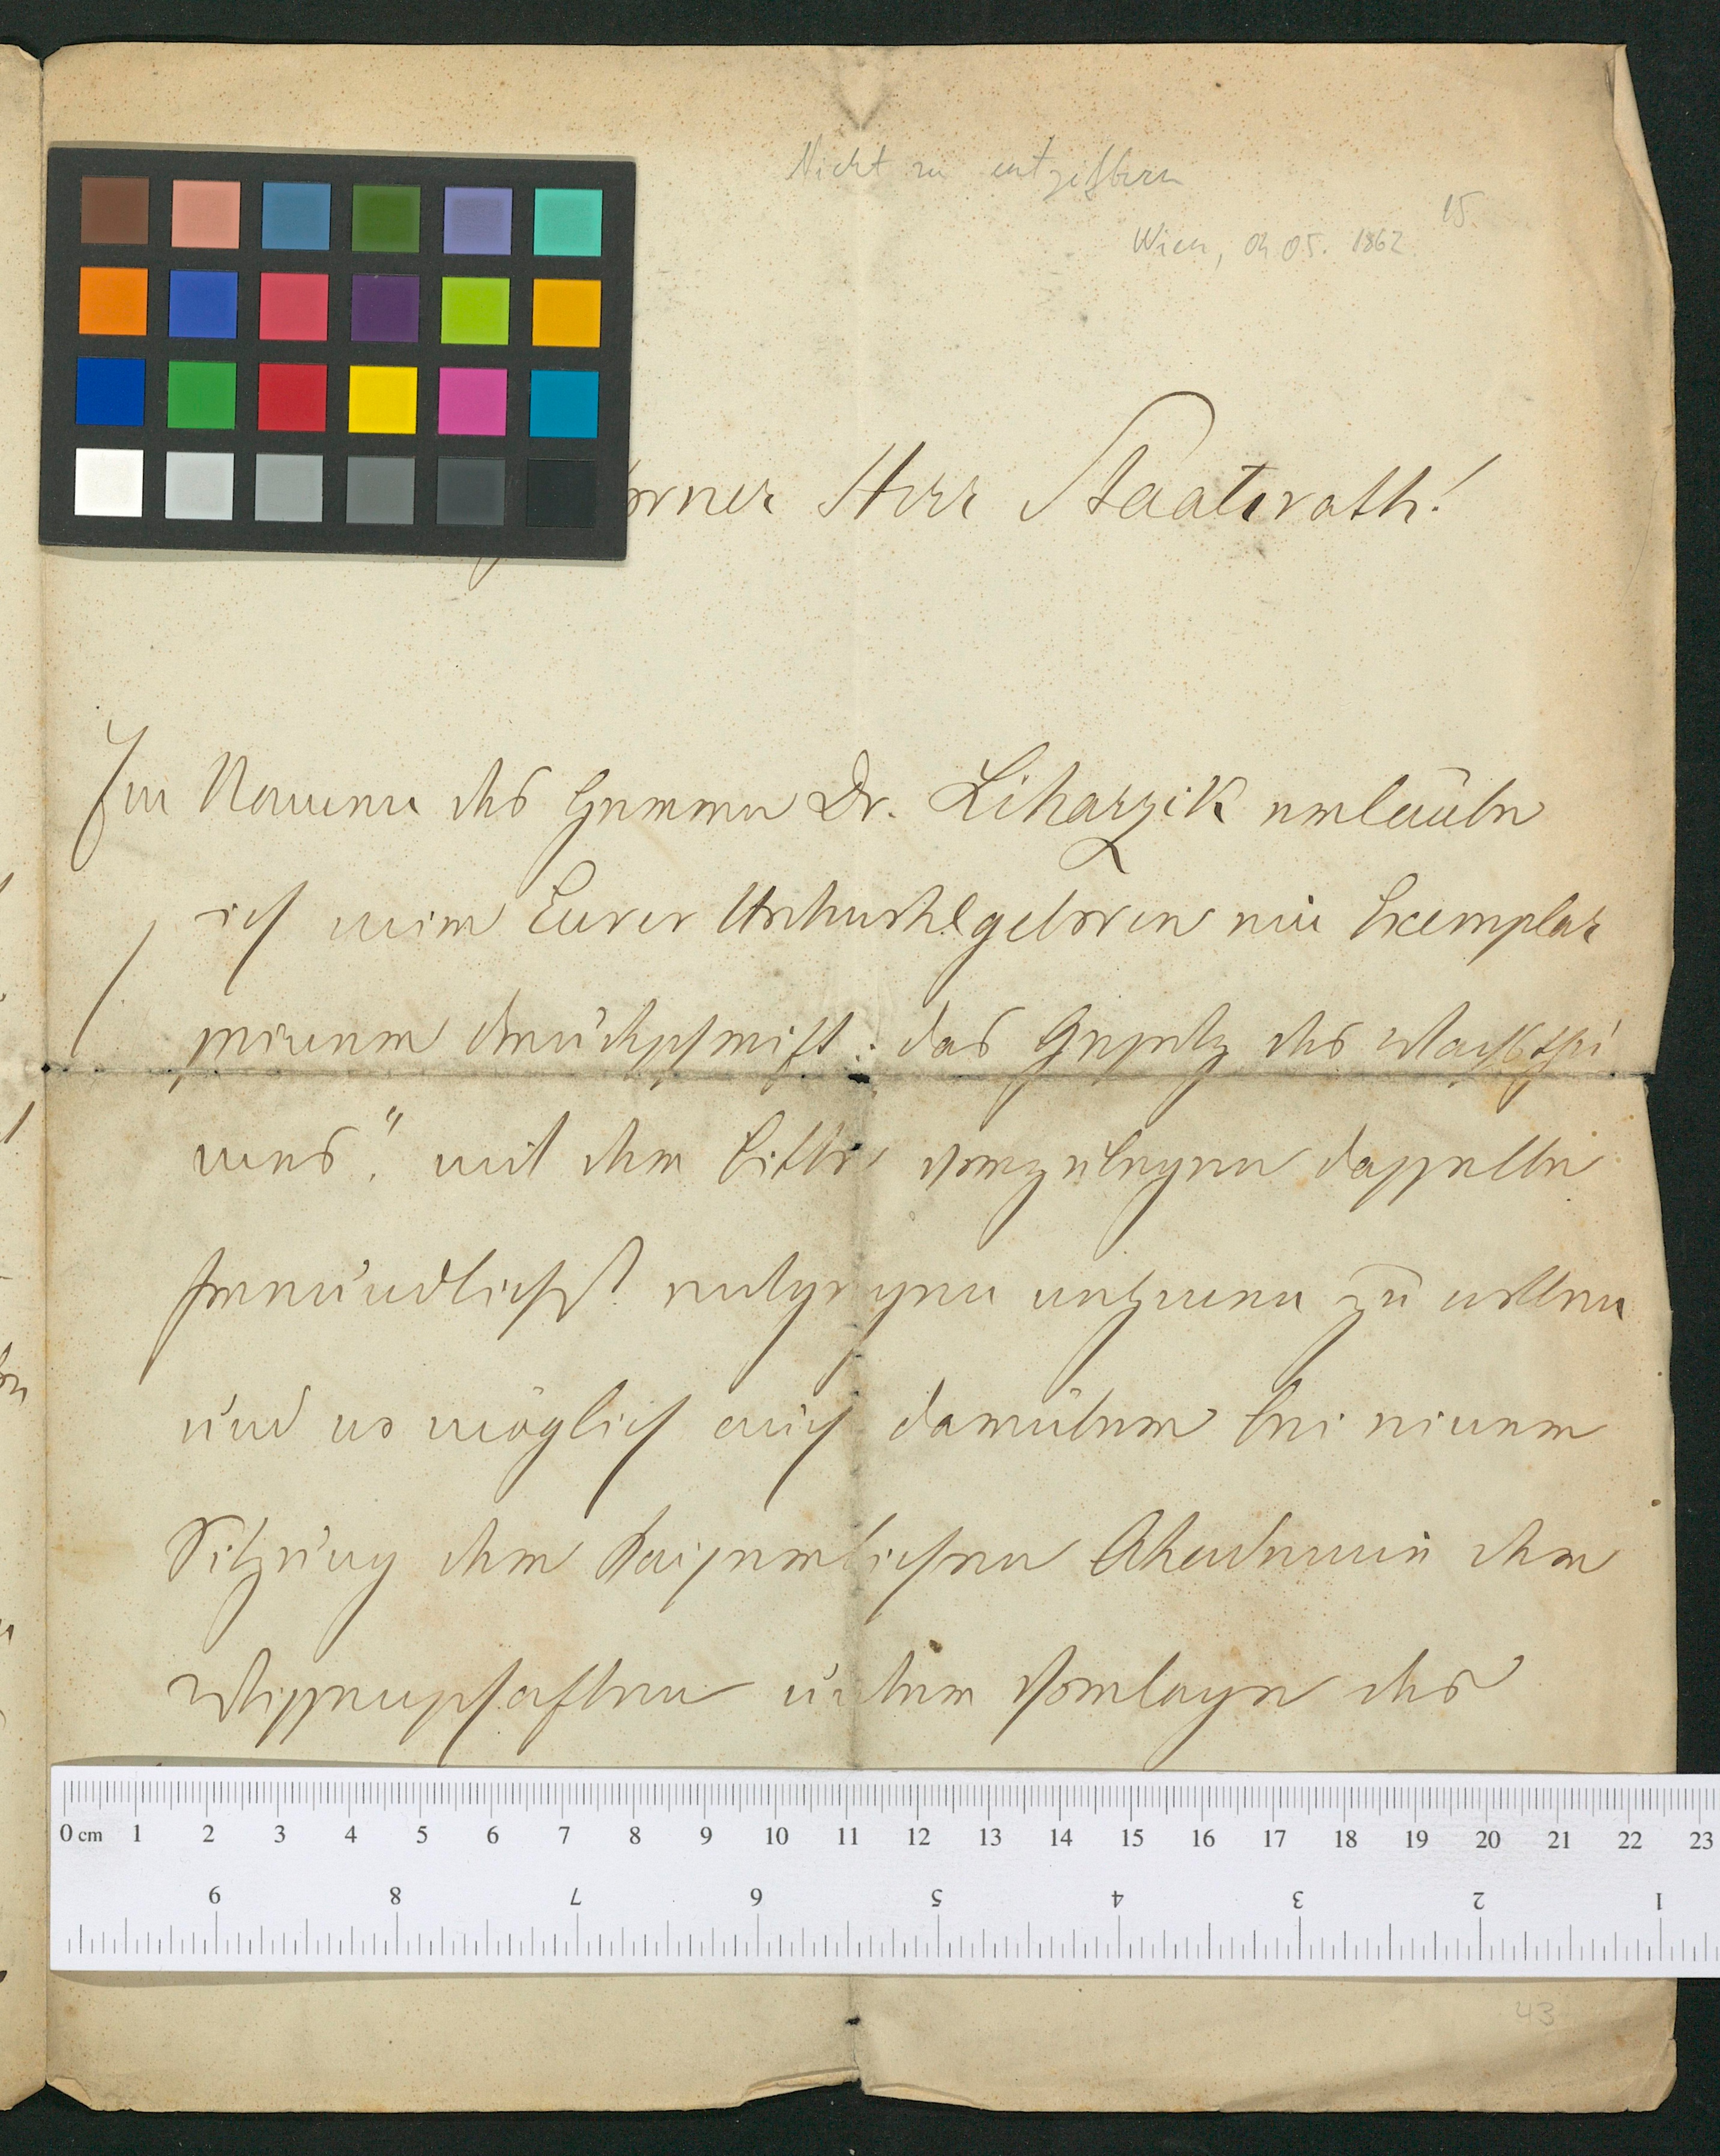 Nicht zu entziffern
15.
Wien, 04 05. 1862
orner Herr Staatsrath!
Im Namen des Herrn Dr. Liharzik erlaube
ich mir Euer Hochwohlgeboren ein Exemplar
seiner Druckschrift: das Gesetz des Wachsthu
mes." mit der Bitte vorzulegen dasselbe
freundlichst entgegen nehmen zu wollen
und wo möglich auch darüber bei einer
Sitzung der Kaiserlichen Akademie der
Wissenschaften unter Vorlage des
0 cm 1 2 3 4 5 6 7 8 9 10 11 12 13 14 15 16 17 18 19 20 21 22 23
9 8 7 6 5 4 3 2 1
43